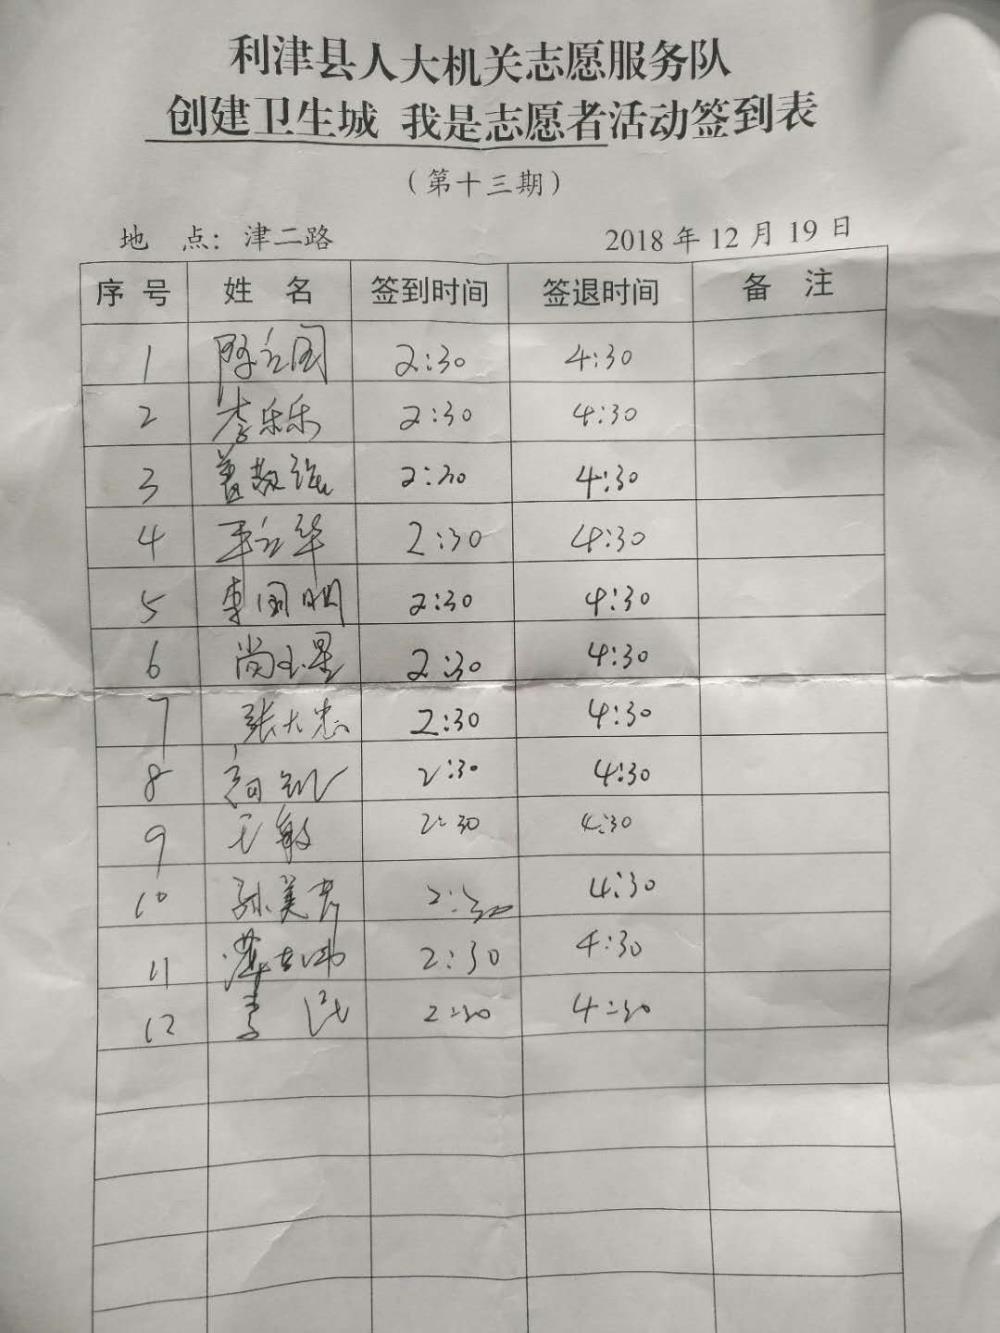 利津县人大机关志愿服务队
创建卫生城 我是志愿者活动签到表
（第十三期）
地 点：津二路 2018年12月19日
序号 姓名 签到时间 签退时间 备注
1 2:30 4:30
2 李乐乐 2:30 4:30
3 2:30 4:30
4 2:30 4:30
5 李国明 2:30 4:30
6 尚玉星 2:30 4:30
7 张大忠 2:30 4:30
8 2:30 4:30
9 王敏 2:30 4:30
10 孙美 2:30 4:30
11 2:30 4:30
12 李 2:30 4:30